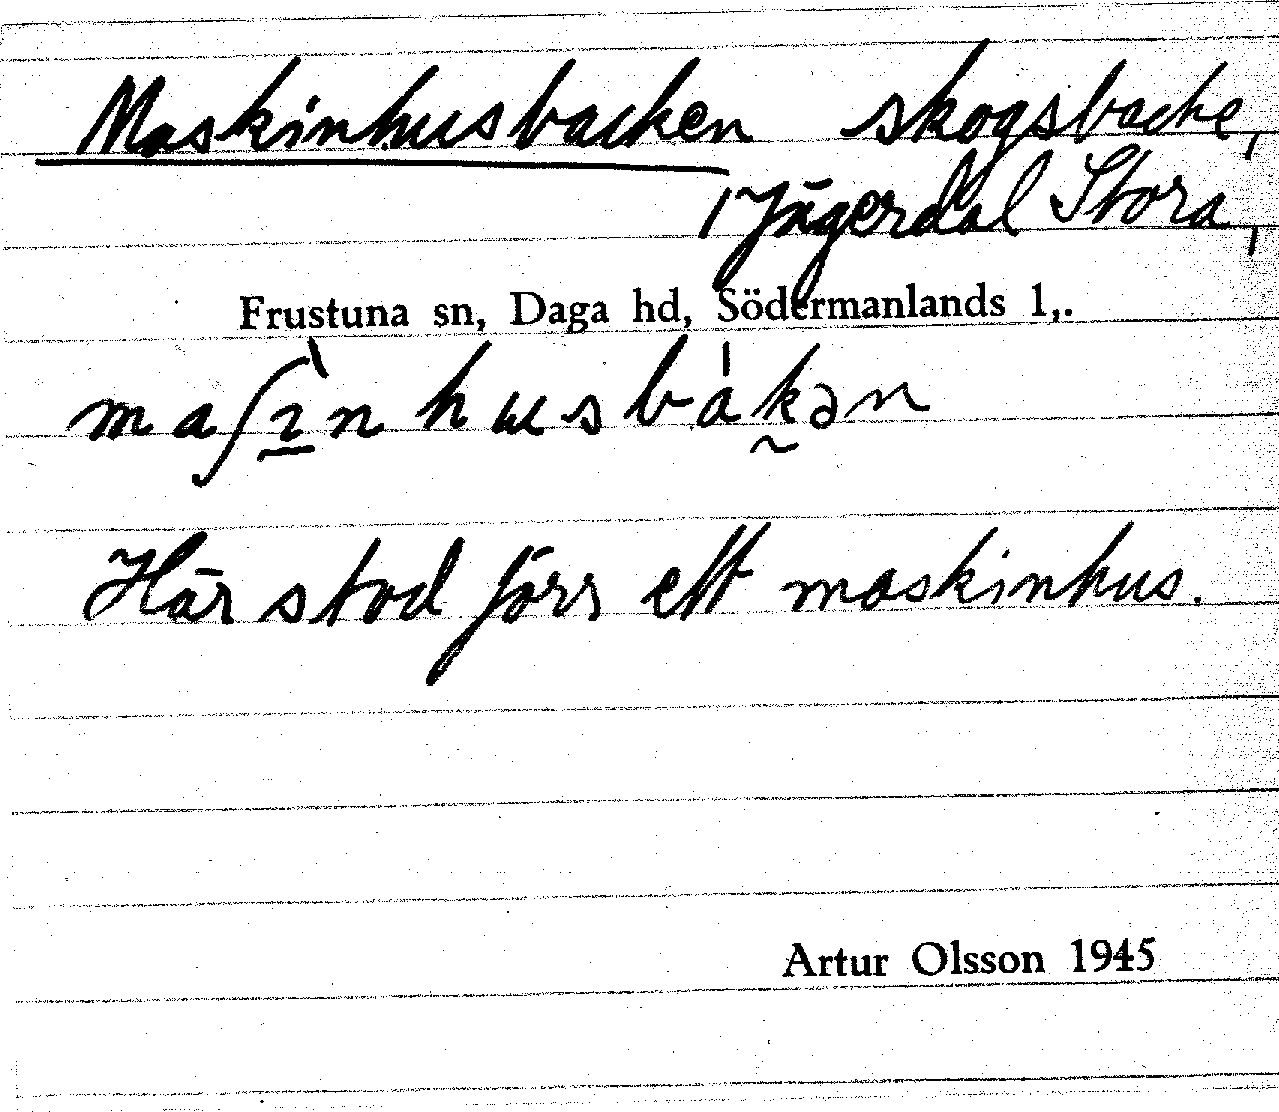 Maskinhusbacken skogsbacke,
i Jägerdal Stora,
Frustuna sn, Daga hd, Södermanlands l,.
maʃɪ̱̀nhusbákən
Här stod förr ett maskinhus.
Artur Olsson 1945